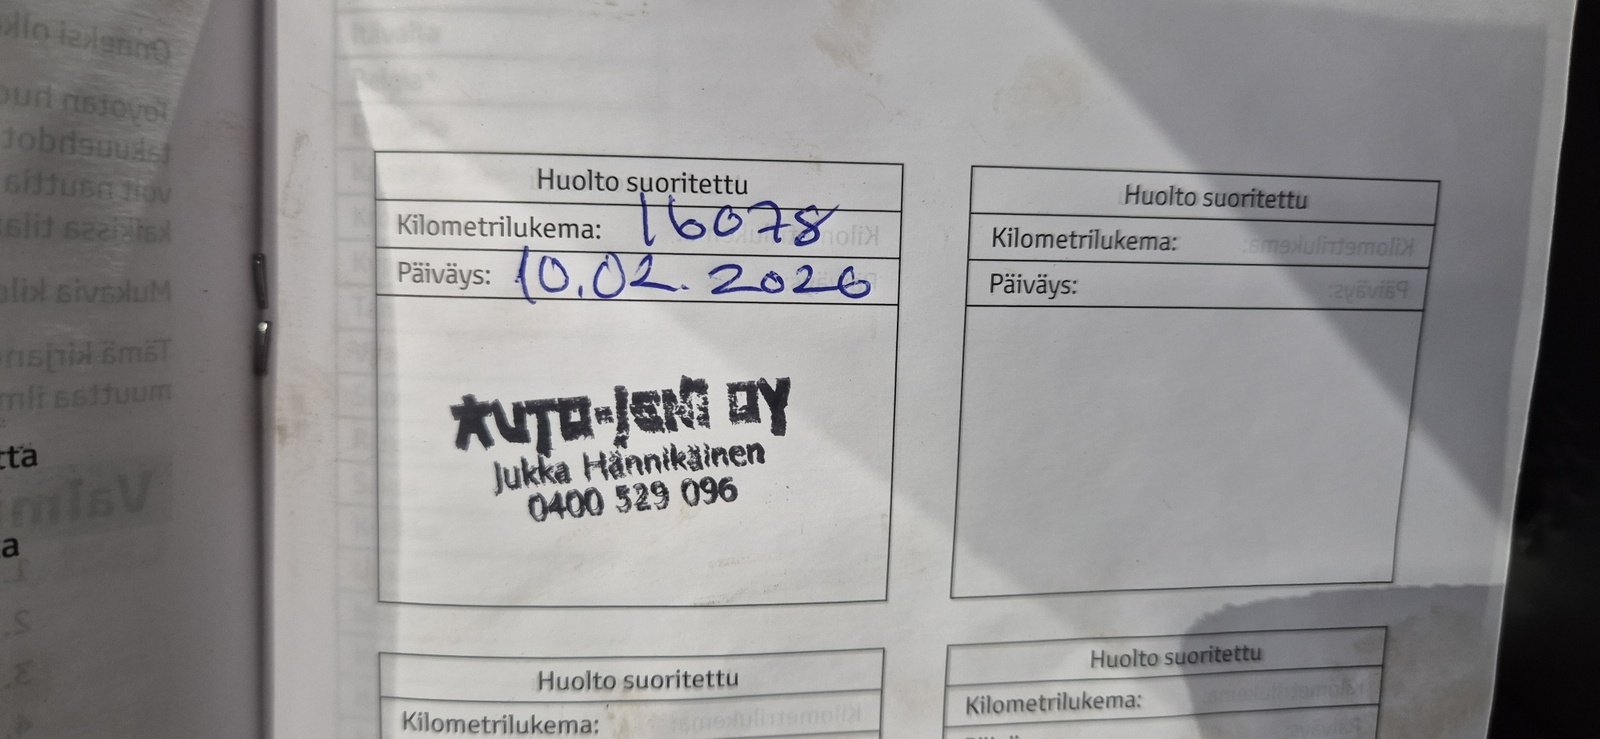 Huolto suoritettu
Kilometrilukema: 16078
Päiväys: 10.02.2026
AUTO-JENI OY
Jukka Hännikäinen
0400 529 096
Huolto suoritettu
Kilometrilukema:
Päiväys:
Huolto suoritettu
Kilometrilukema:
Huolto suoritettu
Kilometrilukema: